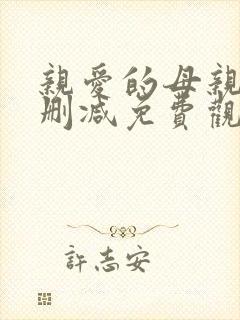 親愛的母親
刪減免費觀
許志安